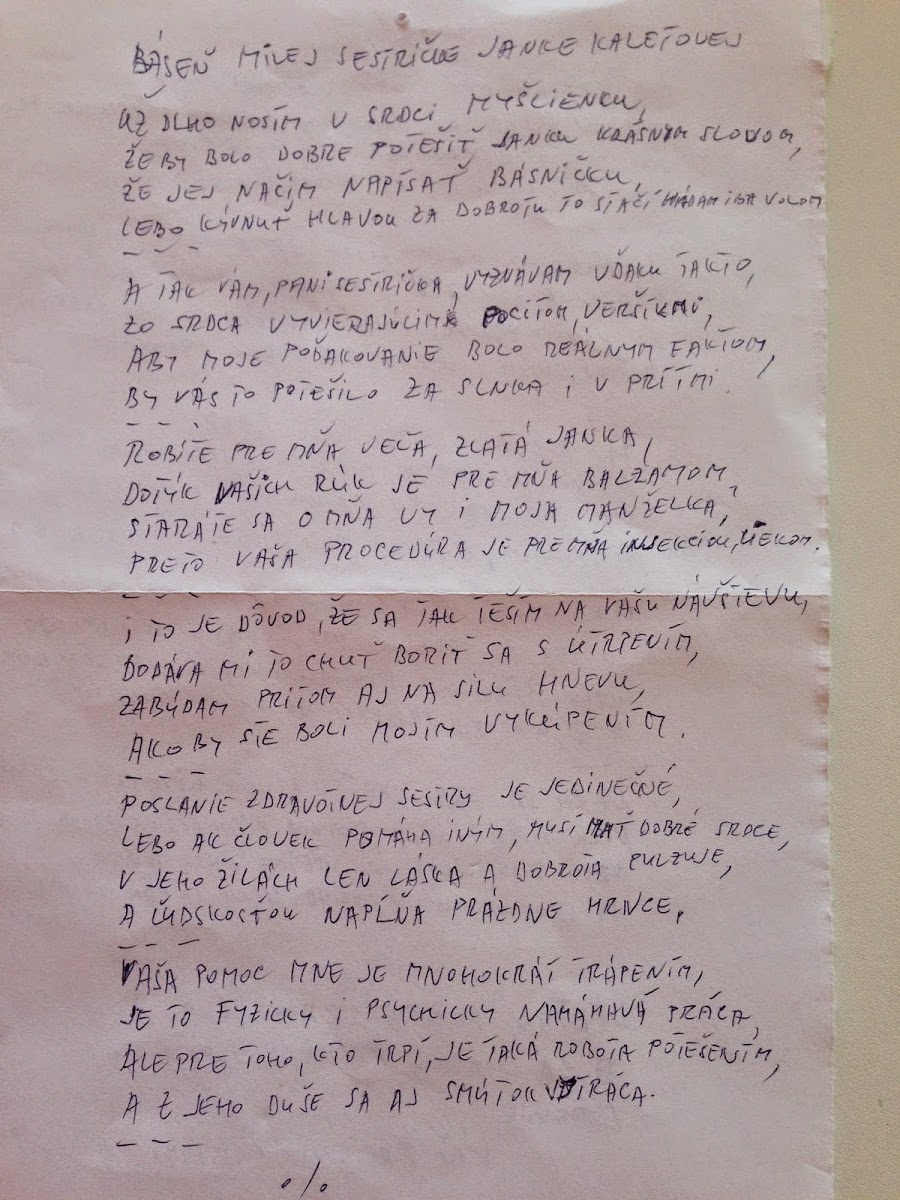 BÁSEŇ MILEJ SESTRIČKE JANKE KALETOVEJ
UŽ DLHO NOSÍM V SRDCI MYŠLIENKU,
ŽE BY BOLO DOBRE POTEŠIŤ JANKU KRÁSNYM SLOVOM,
ŽE JEJ NAČIM NAPÍSAŤ BÁSNIČKU,
LEBO KÝVNUŤ HLAVOU ZA DOBROTU TO STAČÍ HÁDAM IBA VOLOM
- - -
A TAK VÁM, PANI SESTRIČKA, VYZNÁVAM VĎAKU TAKTO,
ZO SRDCA VYVIERAJÚCIM POCITOM, VERŠÍKMI,
ABY MOJE POĎAKOVANIE BOLO REÁLNYM FAKTOM,
BY VÁS TO POTEŠILO ZA SLNKA I V PRÍTMÍ.
- - -
ROBÍTE PRE MŇA VEĽA, ZLATÁ JANKA,
DOTYK VAŠICH RÚK JE PRE MŇA BALZAMOM,
STARÁTE SA O MŇA VY I MOJA MANŽELKA,
PRETO VAŠA PROCEDÚRA JE PRE MŇA INJEKCIOU, LIEKOM.
- - -
I TO JE DÔVOD, ŽE SA TAK TEŠÍM NA VAŠU NÁVŠTEVU,
DODÁVA MI TO CHUŤ BORIŤ SA S ÚTRPENÍM,
ZABÚDAM PRITOM AJ NA SILU HNEVU,
AKO BY STE BOLI MOJÍM VYKÚPENÍM.
- - -
POSLANIE ZDRAVOTNEJ SESTRY JE JEDINEČNÉ,
LEBO AK ČLOVEK POMÁHA INÝM, MUSÍ MAŤ DOBRÉ SRDCE,
V JEHO ŽILÁCH LEN LÁSKA A DOBROTA PULZUJE,
A ĽUDSKOSŤOU NAPĹŇA PRÁZDNE HRNCE.
- - -
VAŠA POMOC MNE JE MNOHOKRÁT TRÁPENÍM,
JE TO FYZICKY I PSYCHICKY NAMÁHAVÁ PRÁCA,
ALE PRE TOHO, KTO TRPÍ, JE TAKÁ ROBOTA POTEŠENÍM,
A Z JEHO DUŠE SA AJ SMÚTOK VYTRÁCA.
- - -
./.